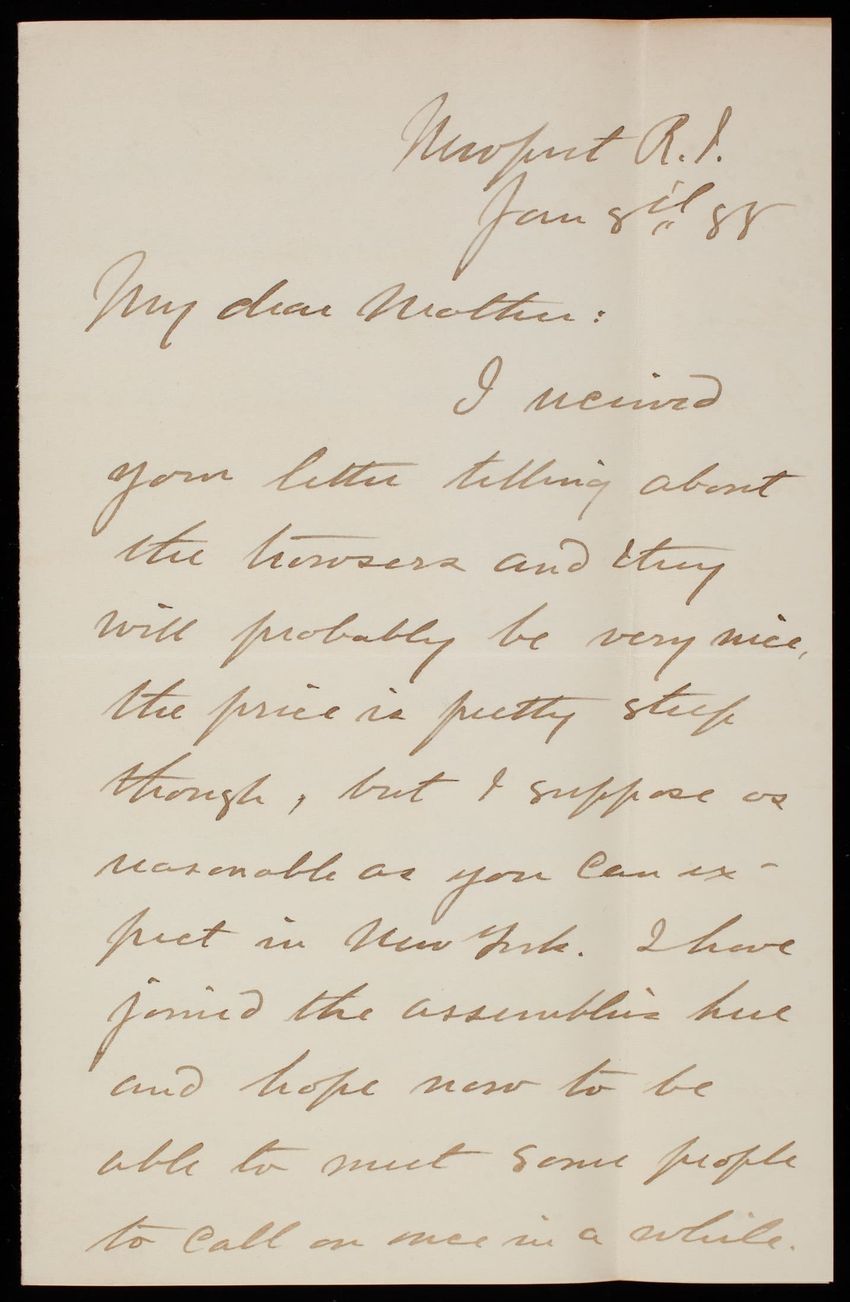 Newport R.I.
Jan 8th 88
My dear Mother:
I received
your letter telling about
the trowsers and they
will probably be very nice,
the price is pretty steep
though, but I suppose as
reasonable as you can ex-
pect in New York. I have
joined the assemblies here
and hope now to be
able to meet some people
to call on once in a while.